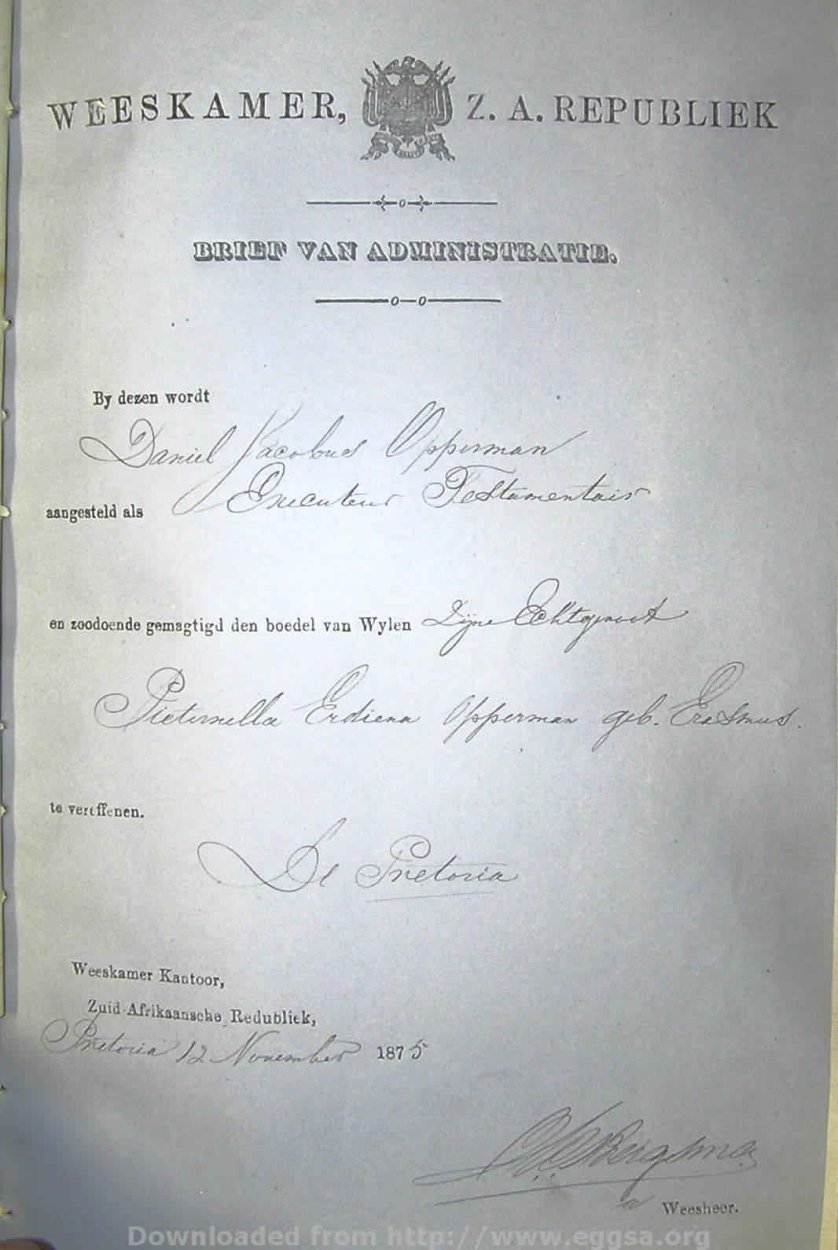 WEESKAMER, Z. A. REPUBLIEK
BRIEF VAN ADMINISTRATIE.
By dezen wordt
Daniel Jacobus Opperman
aangesteld als Executeur Testamentair
en zoodoende gemagtigd den boedel van Wylen Zijne Echtgenoot
Pieternella Erdiena Opperman geb. Erasmus.
te vereffenen.
De Pretoria
Weeskamer Kantoor,
Zuid-Afrikaansche Redubliek,
Pretoria 12 November 1875
Weesheer.
Downloaded from http://www.eggsa.org